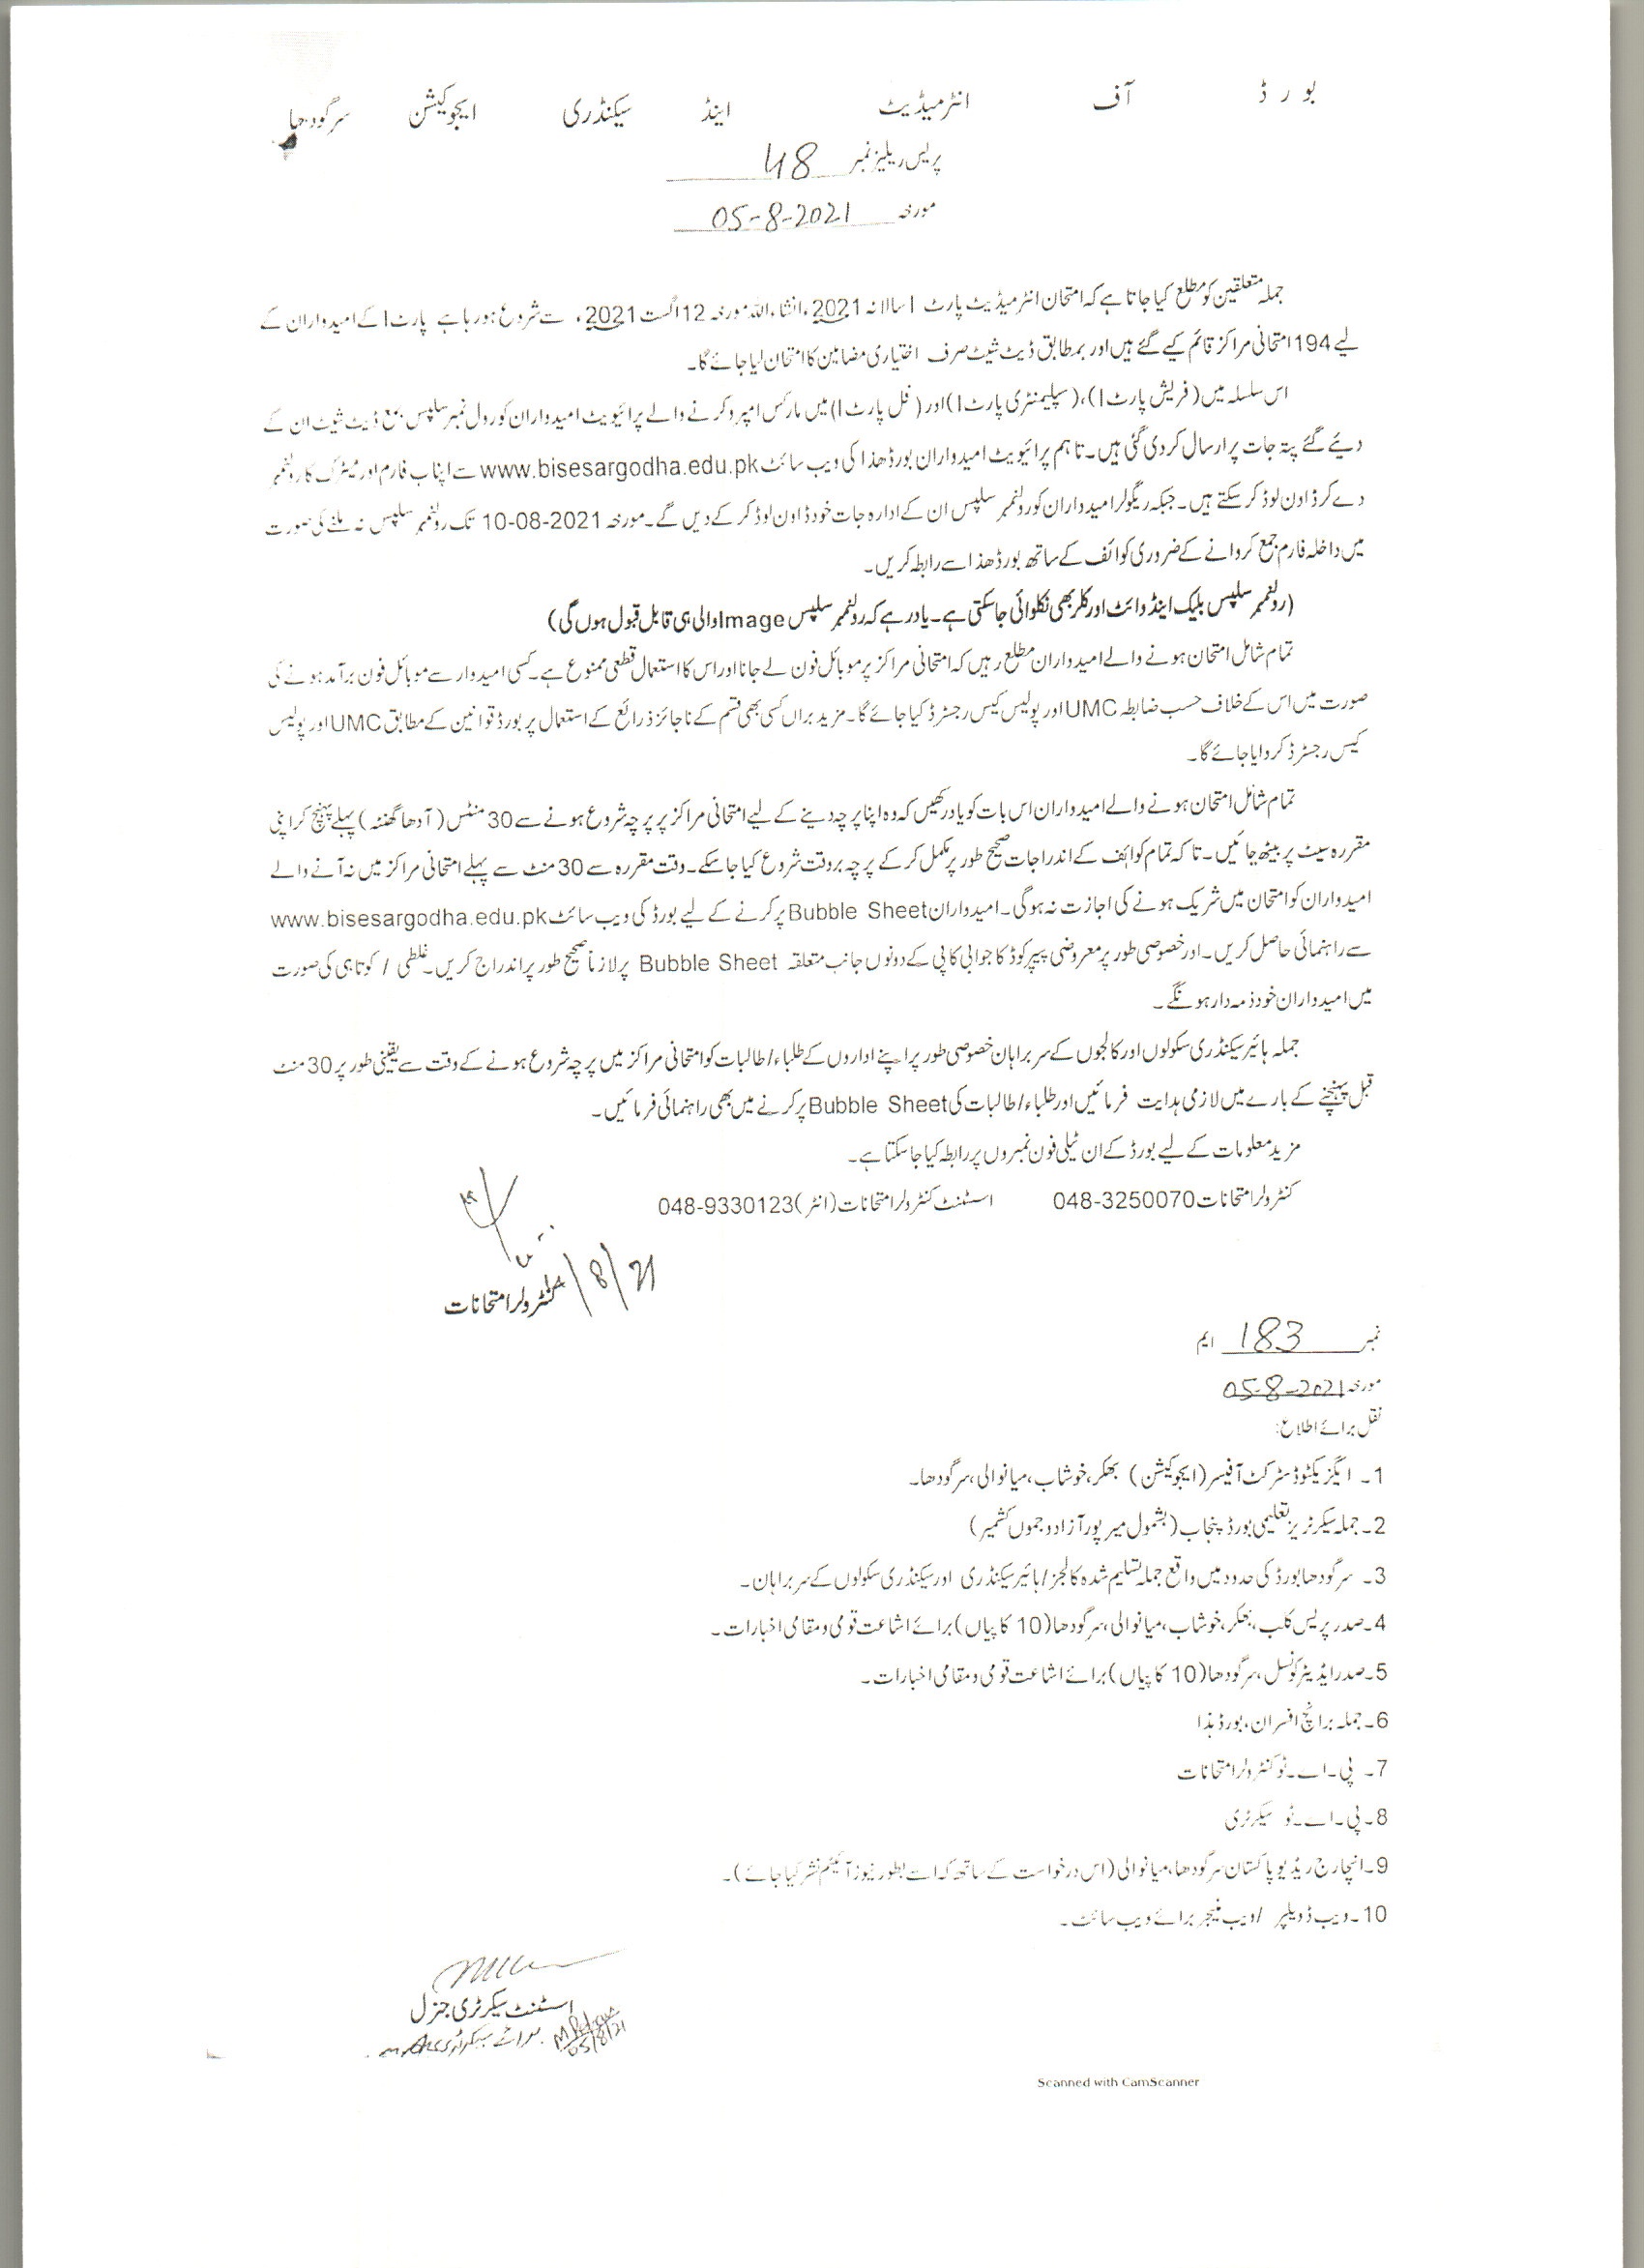 بورڈ آف انٹرمیڈیٹ اینڈ سیکنڈری ایجوکیشن سرگودھا
پریس ریلیز نمبر 48
مورخہ 05-8-2021
جملہ متعلقین کو مطلع کیا جاتا ہے کہ امتحان انٹرمیڈیٹ پارٹ I سالانہ 2021ء انشاء اللہ مورخہ 12 اگست 2021ء سے شروع ہو رہا ہے پارٹ I کے امیدواران کے
لیے 194 امتحانی مراکز قائم کیے گئے ہیں اور بمطابق ڈیٹ شیٹ صرف اختیاری مضامین کا امتحان لیا جائے گا۔
اس سلسلہ میں (فریش پارٹ I)، (سپلیمنٹری پارٹ I) اور (فل پارٹ I) میں مارکس امپرو کرنے والے پرائیویٹ امیدواران کو رول نمبر سلپس بمع ڈیٹ شیٹ ان کے
دیئے گئے پتہ جات پر ارسال کر دی گئی ہیں۔ تاہم پرائیویٹ امیدواران بورڈ ھذا کی ویب سائٹ www.bisesargodha.edu.pk سے اپنا ب فارم اور میٹرک کا رولنمبر
دے کر ڈاون لوڈ کر سکتے ہیں۔ جبکہ ریگولر امیدواران کو رولنمبر سلپس ان کے ادارہ جات خود ڈاون لوڈ کر کے دیں گے۔ مورخہ 10-08-2021 تک رولنمبر سلپس نہ ملنے کی صورت
میں داخلہ فارم جمع کروانے کے ضروری کوائف کے ساتھ بورڈ ھذا سے رابطہ کریں۔
(رولنمبر سلپس بلیک اینڈ وائٹ اور کلر بھی نکلوائی جا سکتی ہے۔ یاد رہے کہ رولنمبر سلپس Image والی ہی قابل قبول ہوں گی)
تمام شامل امتحان ہونے والے امیدواران مطلع رہیں کہ امتحانی مراکز پر موبائل فون لے جانا اور اس کا استعمال قطعی ممنوع ہے۔ کسی امیدوار سے موبائل فون برآمد ہونے کی
صورت میں اس کے خلاف حسب ضابطہ UMC اور پولیس کیس رجسٹرڈ کیا جائے گا۔ مزید براں کسی بھی قسم کے ناجائز ذرائع کے استعمال پر بورڈ قوانین کے مطابق UMC اور پولیس
کیس رجسٹرڈ کروایا جائے گا۔
تمام شامل امتحان ہونے والے امیدواران اس بات کو یاد رکھیں کہ وہ اپنا پرچہ دینے کے لیے امتحانی مراکز پر پرچہ شروع ہونے سے 30 منٹس (آدھا گھنٹہ) پہلے پہنچ کر اپنی
مقررہ سیٹ پر بیٹھ جائیں۔ تا کہ تمام کوائف کے اندراجات صحیح طور پر مکمل کر کے پرچہ بروقت شروع کیا جا سکے۔ وقت مقررہ سے 30 منٹ سے پہلے امتحانی مراکز میں نہ آنے والے
امیدواران کو امتحان میں شریک ہونے کی اجازت نہ ہو گی۔ امیدواران Bubble Sheet پر کرنے کے لیے بورڈ کی ویب سائٹ www.bisesargodha.edu.pk
سے راہنمائی حاصل کریں۔ اور خصوصی طور پر معروضی پیپر کوڈ کا جوابی کاپی کے دونوں جانب متعلقہ Bubble Sheet پر لازماً صحیح طور پر اندراج کریں۔ غلطی / کوتاہی کی صورت
میں امیدواران خود ذمہ دار ہونگے۔
جملہ ہائیر سیکنڈری سکولوں اور کالجوں کے سربراہان خصوصی طور پر اپنے اداروں کے طلباء/طالبات کو امتحانی مراکز میں پرچہ شروع ہونے کے وقت سے یقینی طور پر 30 منٹ
قبل پہنچنے کے بارے میں لازمی ہدایت فرمائیں اور طلباء/طالبات کی Bubble Sheet پر کرنے میں بھی راہنمائی فرمائیں۔
مزید معلومات کے لیے بورڈ کے ان ٹیلی فون نمبروں پر رابطہ کیا جا سکتا ہے۔
کنٹرولر امتحانات 048-3250070 اسسٹنٹ کنٹرولر امتحانات (انٹر) 048-9330123
/8/21
کنٹرولر امتحانات
نمبر 183 ایم
مورخہ 05-8-2021
نقل برائے اطلاع:
1۔ ایگزیکٹو ڈسٹرکٹ آفیسر (ایجوکیشن) بھکر، خوشاب، میانوالی، سرگودھا۔
2۔ جملہ سیکرٹریز تعلیمی بورڈ پنجاب (بشمول میرپور آزاد و جموں کشمیر)
3۔ سرگودھا بورڈ کی حدود میں واقع جملہ تسلیم شدہ کالجز/ہائیر سیکنڈری اور سیکنڈری سکولوں کے سربراہان۔
4۔ صدر پریس کلب، بھکر، خوشاب، میانوالی، سرگودھا (10 کاپیاں) برائے اشاعت قومی و مقامی اخبارات۔
5۔ صدر ایڈیٹر کونسل، سرگودھا (10 کاپیاں) برائے اشاعت قومی و مقامی اخبارات۔
6۔ جملہ برانچ افسران، بورڈ ہذا
7۔ پی۔اے۔ٹو کنٹرولر امتحانات
8۔ پی۔اے۔ٹو سیکرٹری
9۔ انچارج ریڈیو پاکستان سرگودھا، میانوالی (اس درخواست کے ساتھ کہ اسے بطور نیوز آئیٹم نشر کیا جائے)۔
10۔ ویب ڈویلپر / ویب منیجر برائے ویب سائٹ۔
اسسٹنٹ سیکرٹری جنرل
برائے سیکرٹری
05/8/21
Scanned with CamScanner